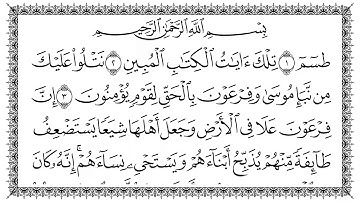 بِسْمِ ٱللَّهِ ٱلرَّحْمَٰنِ ٱلرَّحِيمِ
طسٓمٓ ١ تِلْكَ ءَايَٰتُ ٱلْكِتَٰبِ ٱلْمُبِينِ ٢ نَتْلُوا۟ عَلَيْكَ
مِن نَّبَإِ مُوسَىٰ وَفِرْعَوْنَ بِٱلْحَقِّ لِقَوْمٍ يُؤْمِنُونَ ٣ إِنَّ
فِرْعَوْنَ عَلَا فِى ٱلْأَرْضِ وَجَعَلَ أَهْلَهَا شِيَعًا يَسْتَضْعِفُ
طَآئِفَةً مِّنْهُمْ يُذَبِّحُ أَبْنَآءَهُمْ وَيَسْتَحْىِۦ نِسَآءَهُمْ ۚ إِنَّهُۥ كَانَ